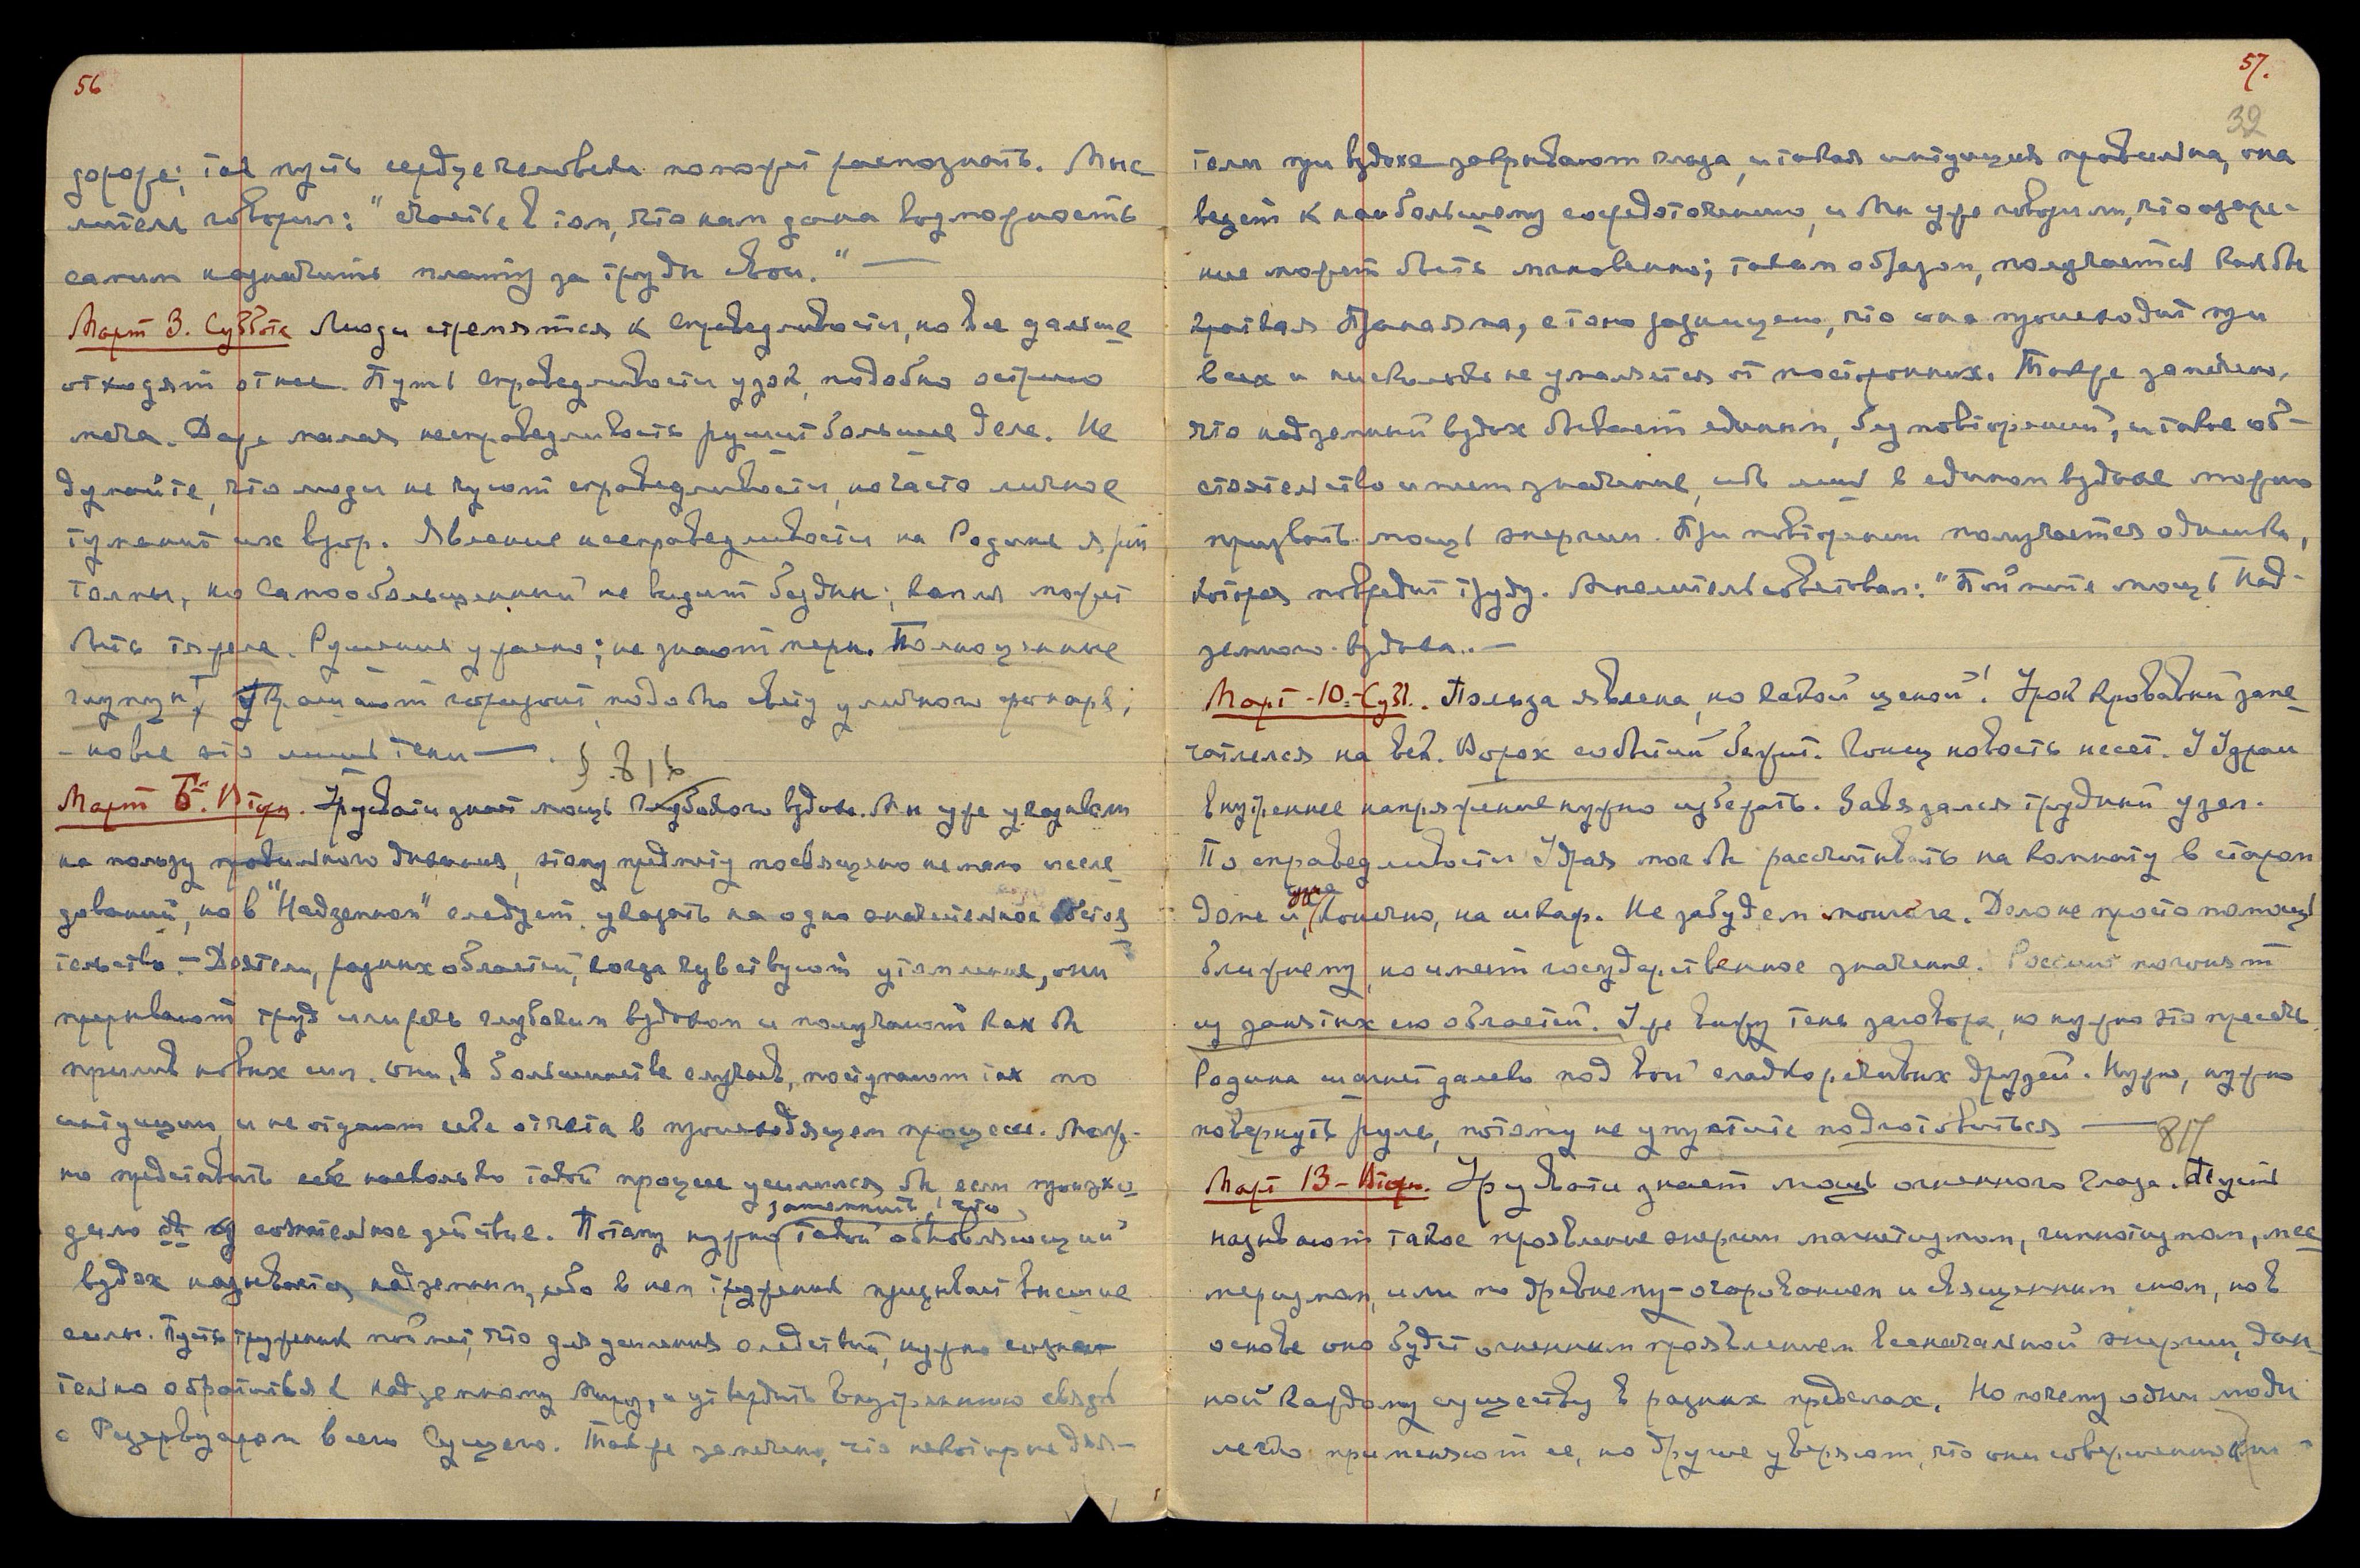 56
дороже; так пусть сердце человека поможет распознать. Мыс
литель говорил: "счастье в том, что нам дана возможность
самим назначить плату за труды свои." —
Март 3. Суббота Люди стремятся к справедливости, но все дальше
отходят от нее. Путь справедливости узок, подобно острию
меча. Даже малая несправедливость рушит большие дела. Не
думайте, что люди не чуют справедливости, но часто личное
туманит их взор. Явление несправедливости на Родине
толпы, но самообольщенный не видит бездны; капля может
быть тяжела. Рушение ужасно; не знают меры. Полноценные
глупцы украшают горизонт подобно свету уличного фонаря;
- новые это лишь тени — .
§ 816
Март 6й. Вторн. Урусвати знает мощь глубокого вздоха. Мы уже указывали
на пользу правильного дыхания, этому предмету посвящено не мало иссле
дований, но в "Надземном" следует указать на одно значительное обстоя
тельство. — Деятели, разных областей, когда чувствуют утомление, они
прерывают труд или речь глубоким вздохом и получают как бы
прилив новых сил. Они, в большинстве случаев, поступают так по
интуиции, и не отдают себе отчета в происходящем процессе. Мож-
но представить себе насколько такой процесс усилился бы, если происхо
запомнить, что
дило бы сознательное действие. Потому нужно такой обновляющий
вздох называется надземным, ибо в нем труженик призывает высшие
силы. Пусть труженик поймет, что для усиления следствий, нужно созна
тельно обратиться к надземному миру, и утвердить внутреннюю связь
с Резервуаром всего Сущего. Также замечено, что некоторые дея-
57.
32
тели при вздохе закрывают глаза, и такая интуиция правильна, она
ведет к наибольшему сосредоточению, и Мы уже говорили, что озаре-
ние может быть мгновенно; таким образом, получается как бы
краткая Пранаяма, с тою разницею, что она происходит при
всех и нисколько не умаляется от посторонних. Также замечено,
что надземный вздох бывает единым, без повторений, и такое об-
стоятельство имеет значение, ибо лишь в едином вздохе можно
призвать мощь энергии. При повторении получается одышка,
которая повредит труду. Мыслитель советовал: "Поймите мощь Над-
земного вздоха. —
Март - 10. - Субб. Польза явлена, но какой ценой! Урок кровавый запе
чатлелся на век. Ворох событий бежит. Гонец новость несет. У Удраи
внутреннее напряжение нужно избегать. Завязался трудный узел.
По справедливости Удрая мог бы рассчитывать на комнату в старом
доме и, конечно, на шкаф. Не забудем Дело не просто помощь
ближнему, но имеет государственное значение. Россию погонят
из занятых ею областей. Уже вижу тень заговора, но нужно это пресечь.
Родина шагнет далеко под вой сладкоречивых друзей. Нужно, нужно
повернуть руль, потому не упустите подготовиться —
817
Март 13 - Вторн. Урусвати знает мощь огненного глаза. Пусть
называют такое проявление энергии магнетизмом, гипнотизмом, мес
меризмом, или по древнему - очарованием и священным сном, но в
основе оно будет огненным проявлением всеначальной энергии, дан
ной каждому существу в разных пределах. Но почему одни люди
легко применяют ее, но другие уверяют, что они совершенно